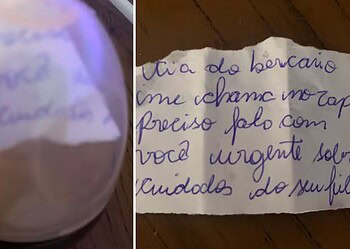 você
cuidados
Tia do bercario
me chama no zap
Preciso falo com
você urgente sobr
cuidados do seu fil